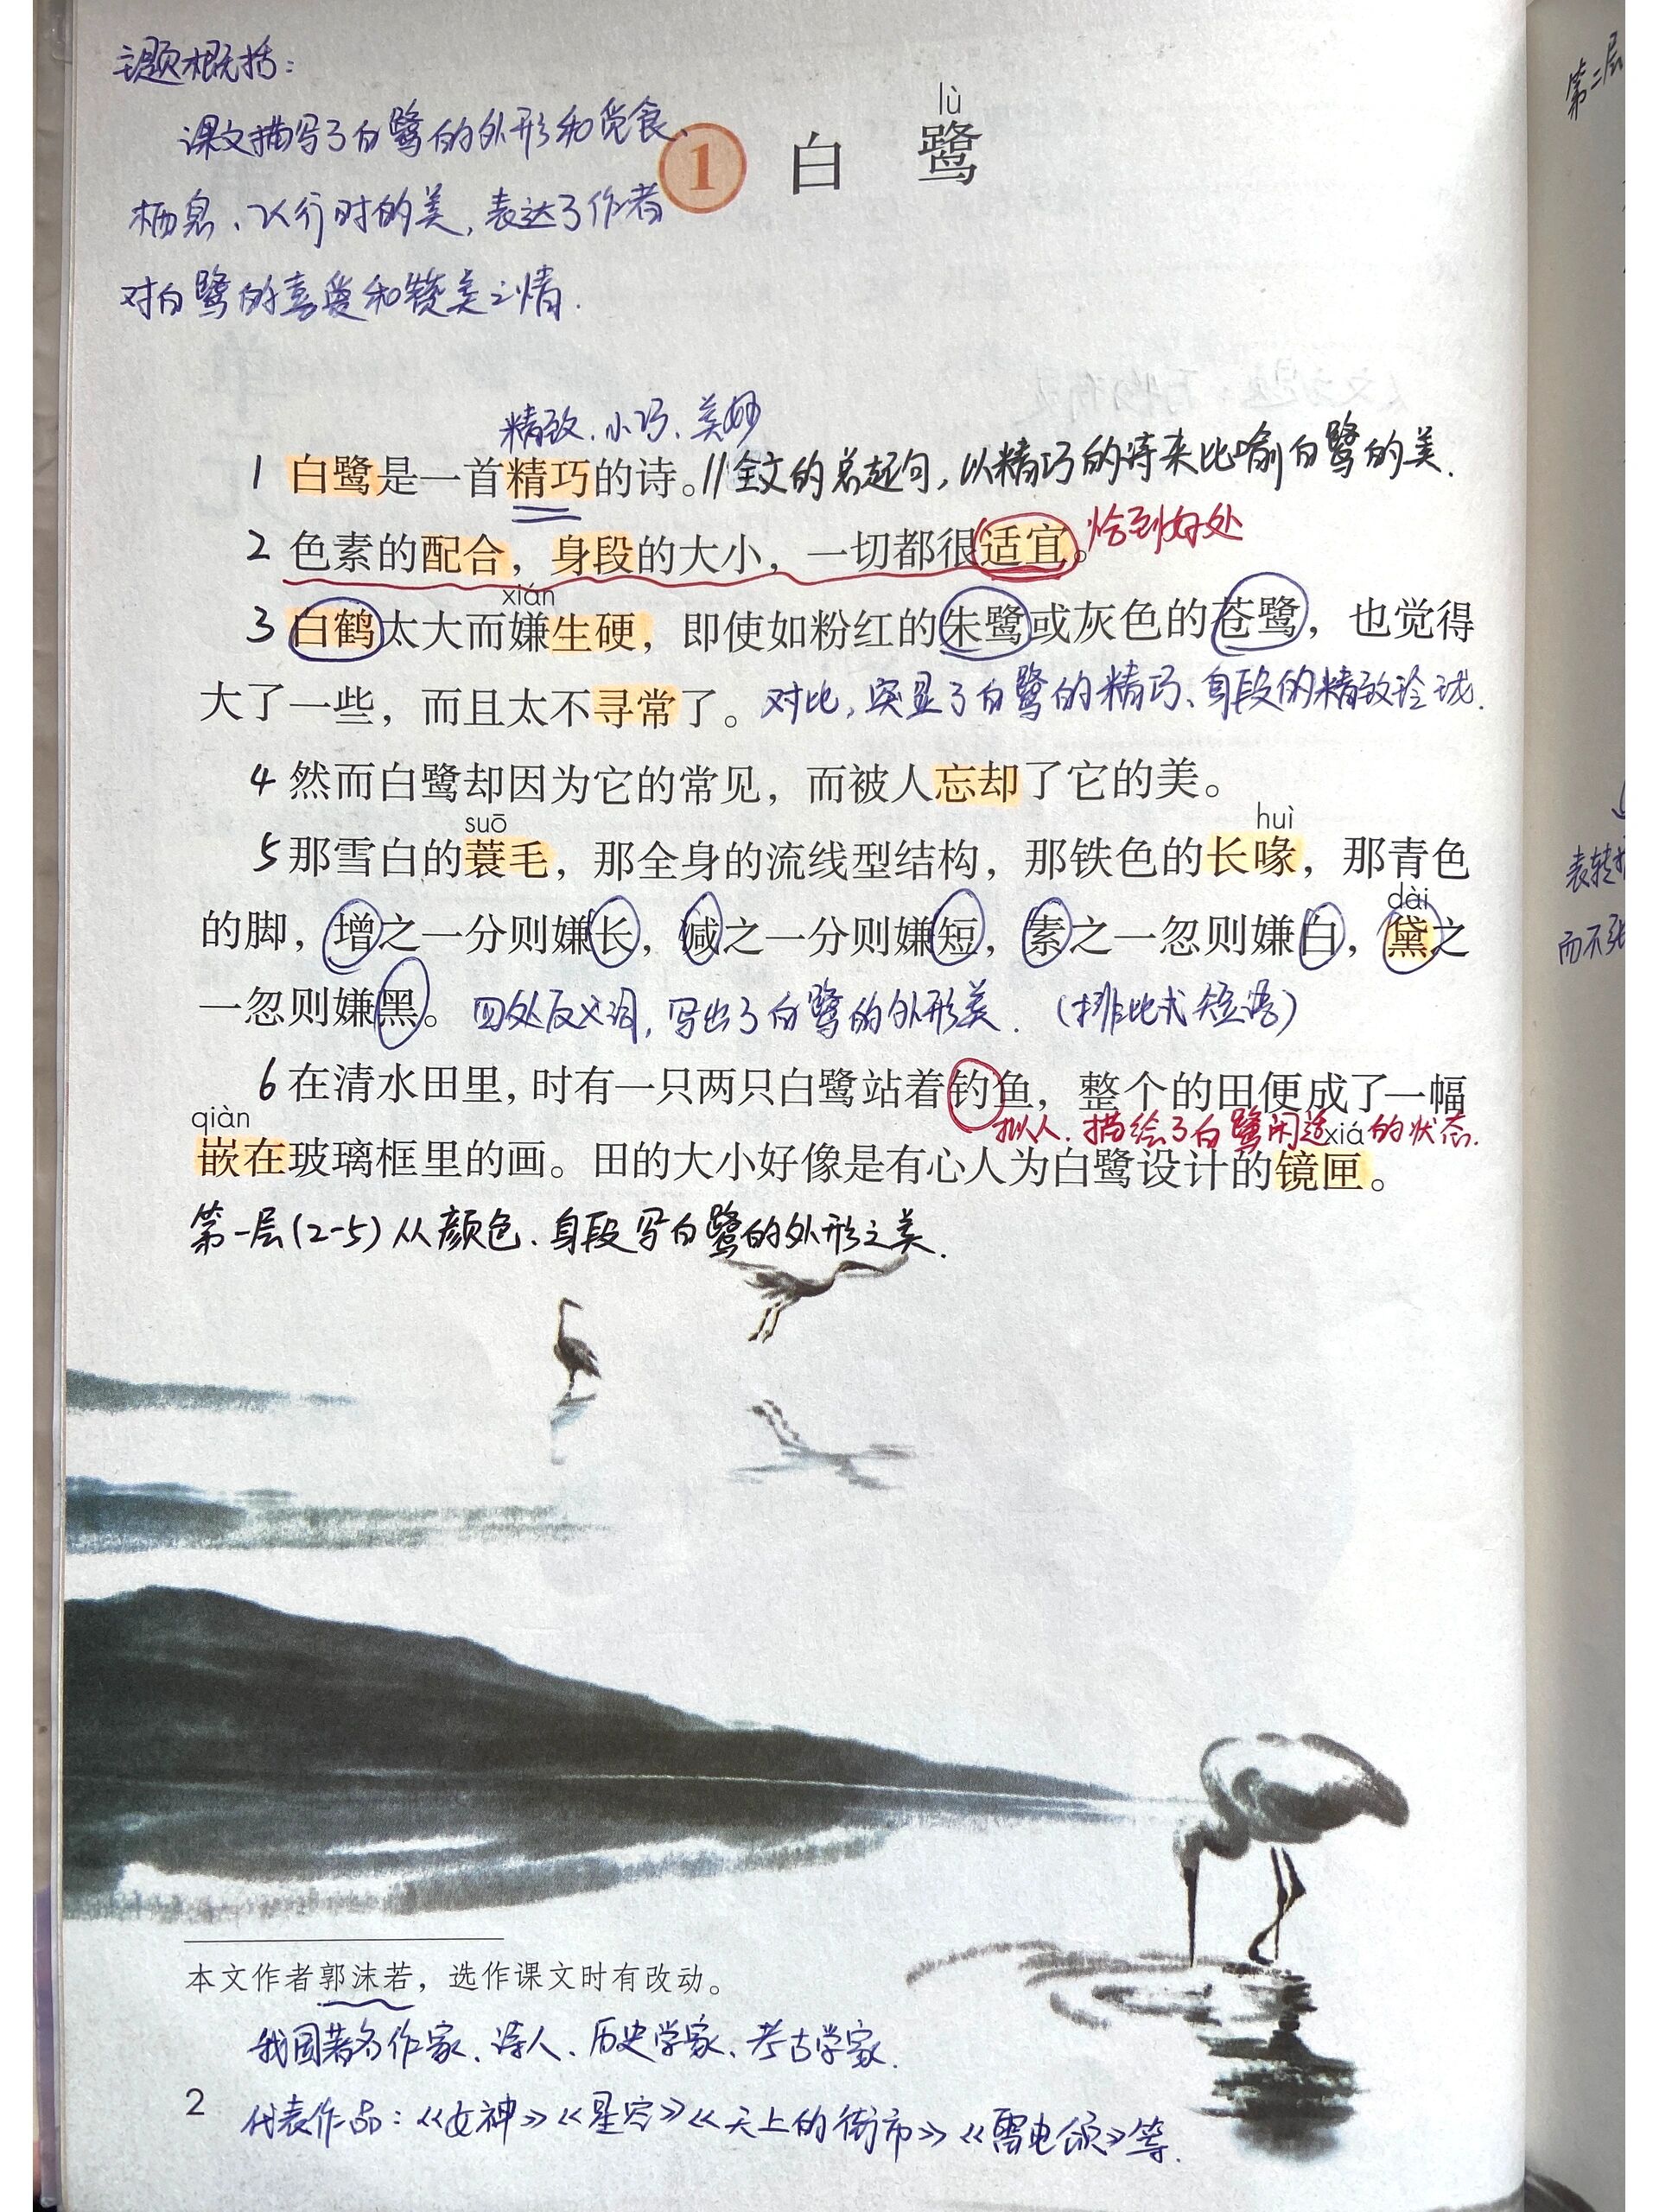 主题概括：
课文描写了白鹭的外形和觅食、
栖息、飞行时的美，表达了作者
对白鹭的喜爱和赞美之情.
lù
1 白 鹭
精致、小巧、美妙
1 白鹭是一首精巧的诗。//全文的总起句，以精巧的诗来比喻白鹭的美.
2 色素的配合，身段的大小，一切都很适宜。恰到好处
xián
3 白鹤太大而嫌生硬，即使如粉红的朱鹭或灰色的苍鹭，也觉得
大了一些，而且太不寻常了。对比，突显了白鹭的精巧、身段的精致玲珑.
4 然而白鹭却因为它的常见，而被人忘却了它的美。
suō huì
5 那雪白的蓑毛，那全身的流线型结构，那铁色的长喙，那青色
dài
的脚，增之一分则嫌长，减之一分则嫌短，素之一忽则嫌白，黛之
一忽则嫌黑。四处反义词，写出了白鹭的外形美.（排比式短语）
6 在清水田里，时有一只两只白鹭站着钓鱼，整个的田便成了一幅
拟人.描绘了白鹭闲适的状态.
qiàn xiá
嵌在玻璃框里的画。田的大小好像是有心人为白鹭设计的镜匣。
第一层(2-5)从颜色、身段写白鹭的外形之美.
本文作者郭沫若，选作课文时有改动。
我国著名作家、诗人、历史学家、考古学家.
2
代表作品：《女神》《星空》《天上的街市》《雷电颂》等.
第二层
表转折
而不